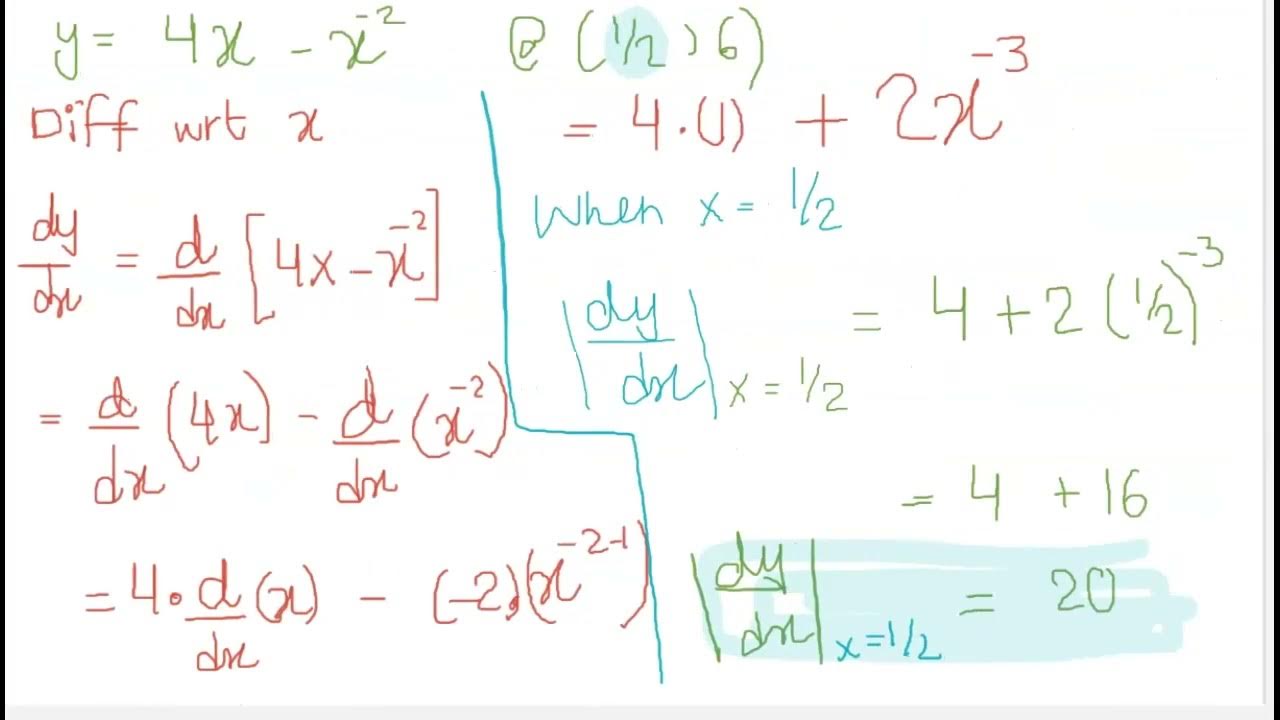 y = 4x - x⁻² @ (1/2, 6)
Diff wrt x
dy/dx = d/dx [4x - x⁻²]
= d/dx (4x) - d/dx (x⁻²)
= 4 · d/dx (x) - (-2)·(x⁻²⁻¹)
= 4 · (1) + 2x⁻³
When x = 1/2
|dy/dx| x = 1/2 = 4 + 2 (1/2)⁻³
= 4 + 16
|dy/dx| x = 1/2 = 20